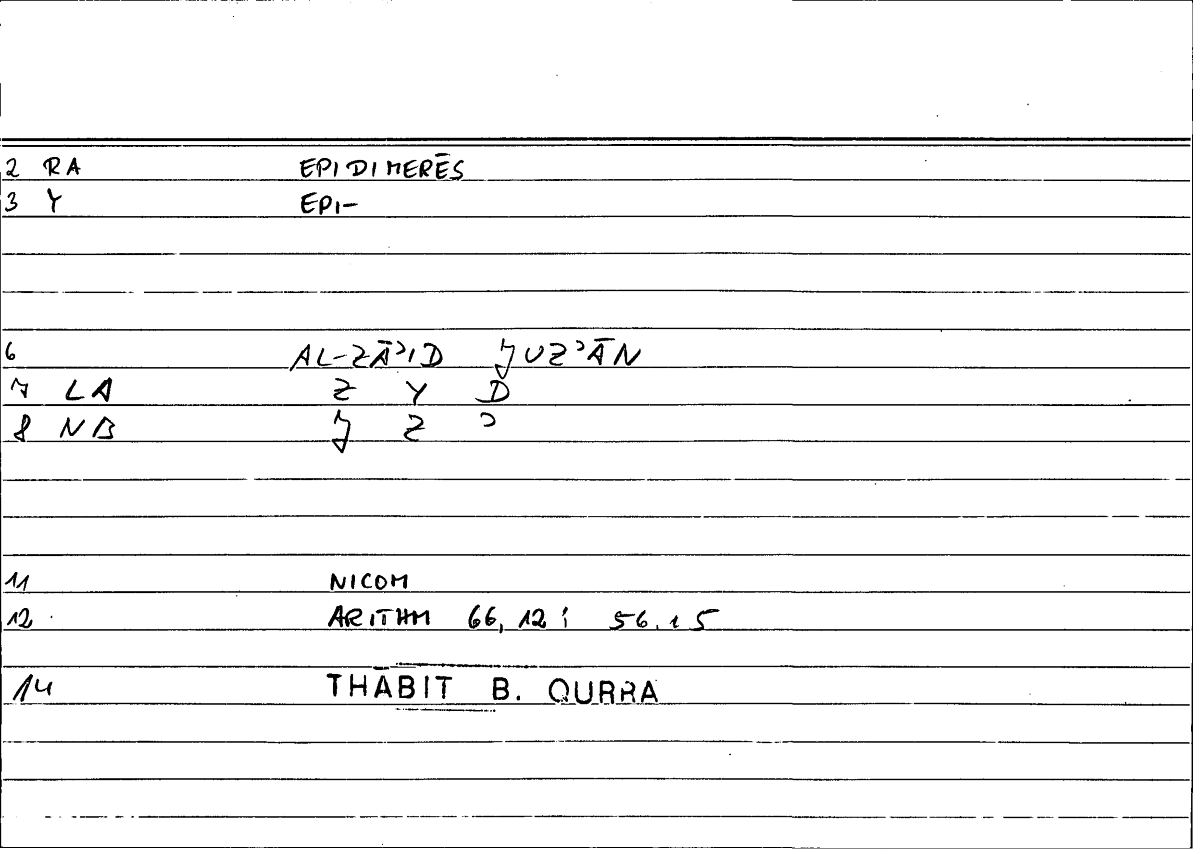 2 RA EPIDIMERĒS
3 Y EPI-
6 AL-ZĀʾID JUZʾĀN
7 LA Z Y D
8 NB J Z ʾ
11 NICOM
12 ARITHM 66, 12 ; 56.15
14 THABIT B. QURRA